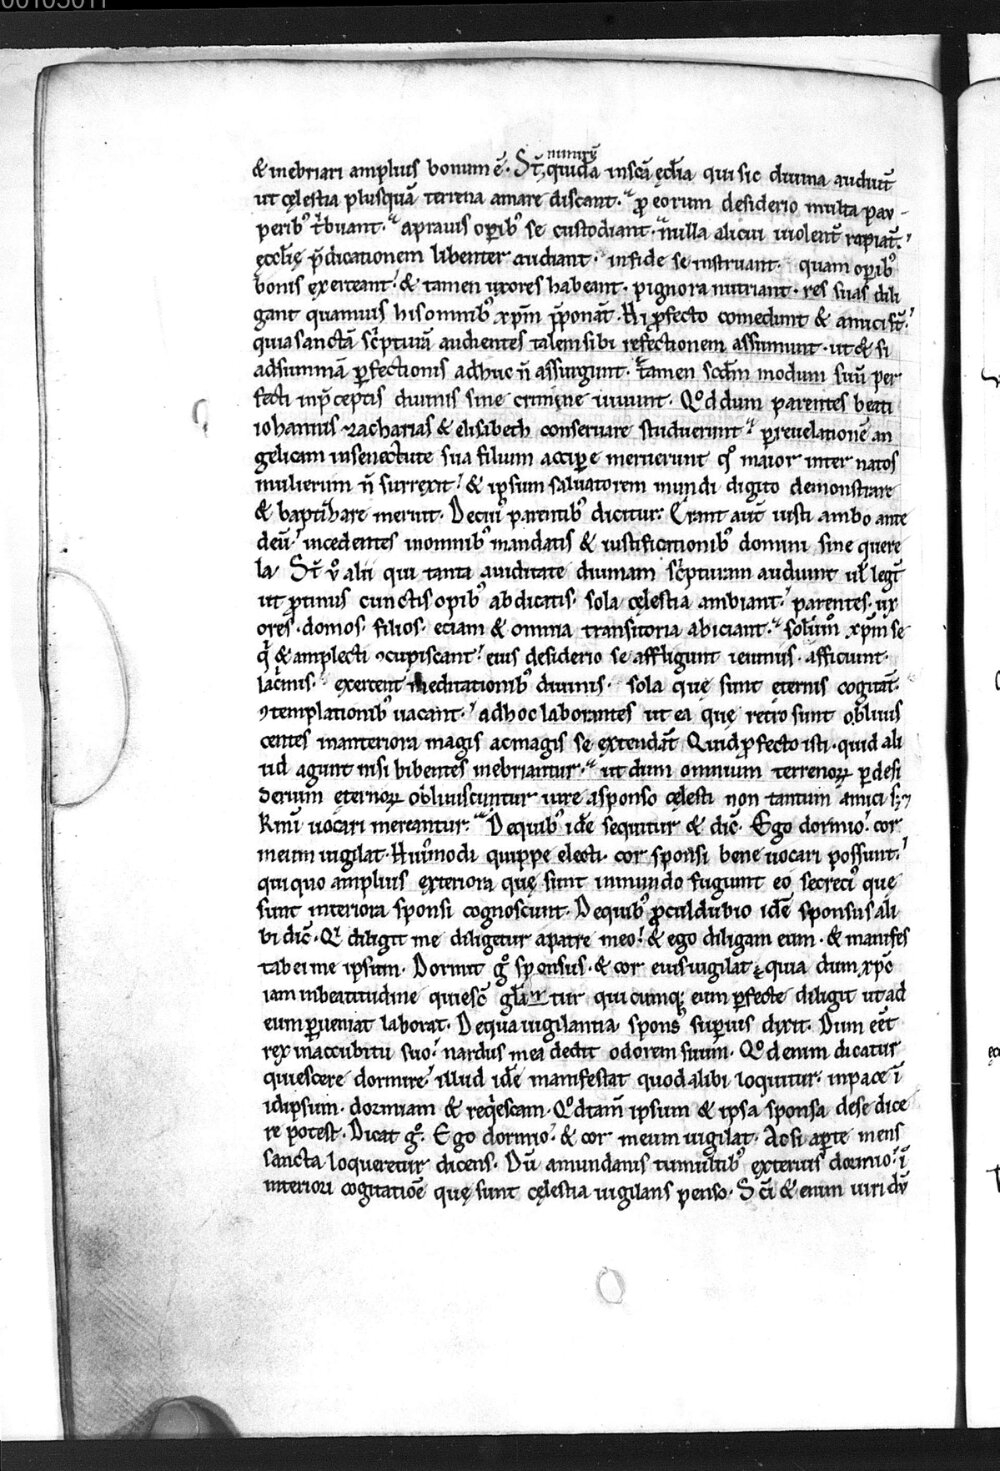 00105011
nimirū
& inebriari amplius bonum ē. St̄ quidā in scā ęcclia qui sic diuina audiunt
ut cęlestia plusquā terrena amare discant. ꝓ eorum desiderio multa pau-
perib; tͥbuant. a prauis oꝑib; se custodiant. nulla alicui uiolent̄ rapiat̄.
ęcclię p̄dicationem libenter audiant. in fide se instruant. quam oꝑib;
bonis exerceant. & tamen uxores habeant. pignora nutriant. res suas dili
gant quamuis his omnib; xp̄m p̄ponāt. Hi ꝓfecto comedunt & amici st̄.
quia sanctā sc̄pturā audientes talem sibi refectionem assumunt. ut & si
ad summā ꝑfectionis adhuc n̄ assurgunt. tamen scd̄m modum suū per
fecti in p̄ceptis diuinis sine crimine uiuunt. Qd̄ dum parentes beati
iohannis zacharias & elisabeth conseruare studuerunt. ꝑ reuelationē an
gelicam in senectute sua filium accipe meruerunt q̊ maior inter natos
mulierum n̄ surrexit. & ipsum saluatorem mundi digito demonstrare
& baptizare meruit. De cui; parentib; dicitur. Erant aut̄ iusti ambo ante
deū. incedentes in omnib; mandatis & iustificationib; domini sine quere
la. St̄ ů alii qui tanta auiditate diuinam sc̄pturam audiunt ul̄ legt̄
ut ꝓtinus cunctis opib; abdicatis. sola cęlestia ambiant. parentes. ux
ores. domos. filios. eciam & omnia transitoria abiciant. solum̊ xp̄m se
q̇ & amplecti ꝯcupiscant. eius desiderio se affligunt ieiuniis. afficiunt
lac̄mis. exercent meditationib; diuinis. sola quę sunt eternis cogitāt.
ꝯtemplationib; uacant. ad hoc laborantes ut ea quę retro sunt obliuis
centes in anteriora magis ac magis se extendāt. Quid ꝓfecto isti. quid ali
ud agunt nisi bibentes inebriantur. ut dum omnium terrenoꝝ ꝑ desi
derium eternoꝝ obliuiscuntur iure a sponso cęlesti non tantum amici s;
Krm̄i uocari mereantur. De quib; idē sequitur & dic̄. Ego dormio. cor
meum uigilat. Hui;modi quippe electi. cor sponsi bene uocari possunt.
qui quo amplius exteriora quę sunt in mundo fugunt eo secreci; quę
sunt interiora sponsi cognoscunt. De quib; ꝓculdubio idē sponsus ali
bi dic̄. Qͥ diligit me diligetur a patre meo. & ego diligam eum. & manifes
tabo ei me ipsum. Dormit g̊ sponsus. & cor eius uigilat. quia dum xp̄c
iam in beatitudine quiesc̄ gl̄a tur quicumq; eum ꝑfecte diligit ut ad
eum ꝑueniat laborat. De qua uigilantia spons; suꝑius dixit. Dum eēt
rex in accubitu suo. nardus mea dedit odorem suum. Qd̄ enim dicatur
quiescere dormire. illud idē manifestat quod alibi loquitur. in pace ī
idipsum. dormiam & req̇escam. Qd̄ tam̄ ipsum & ipsa sponsa de se dice
re potest. Dicat g̊. Ego dormio. & cor meum uigilat. Ac si aꝑte mens
sancta loqueretur dicens. Dū a mundanis tumultib; exterius dormio. ī
interiori cogitatiōe quę sunt cęlestia uigilans penso. Sc̄i & enim uiri dū